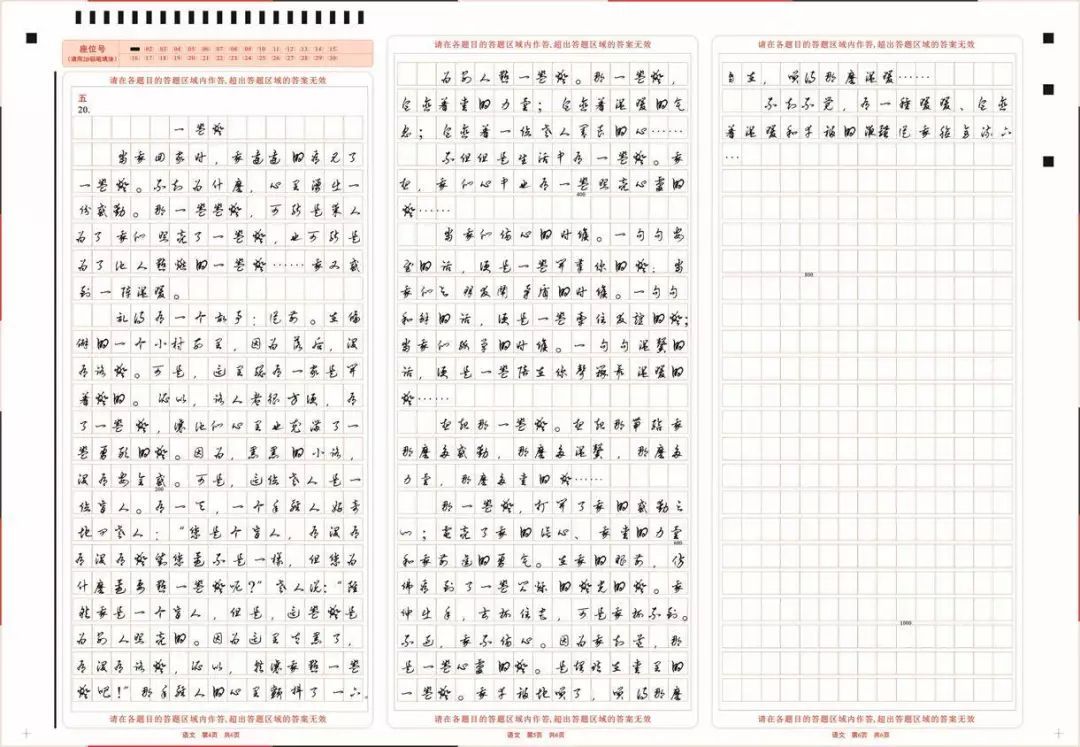 座位号
(请用2B铅笔填涂)
02 03 04 05 06 07 08 09 10 11 12 13 14 15
16 17 18 19 20 21 22 23 24 25 26 27 28 29 30
请在各题目的答题区域内作答,超出答题区域的答案无效
五
20.
一盏灯
当我回家时,我远远的看见了
一盏灯。不知为什么,心里涌生一
份感动。那一盏盏灯,可能是某人
为了我们照亮了一盏灯,也可能是
为了他人点燃的一盏灯……我又感
到一阵温暖。
记得有一个故事:从前。在偏
僻的一个小村前里,因为落后,没
有路灯。可是,这里总有一家是开
着灯的。所以,路人都很方便,有
了一盏灯,让他们心里也充满了一
盏勇敢的灯。因为,黑黑的小路,
没有安全感。可是,这位老人是一
位盲人。有一天,一个年轻人好奇
地问老人:“您是个盲人,有没有
有没有灯对您都不是一样,但您为
什么还要点一盏灯呢?”老人说:“虽
然我是一个盲人,但是,这盏灯是
为别人照亮的。因为这里天黑了,
有没有路灯,所以,就让我点一盏
灯吧!”那年轻人的心里颤抖了一下。
200
请在各题目的答题区域内作答,超出答题区域的答案无效
语文 第4页 共6页
请在各题目的答题区域内作答,超出答题区域的答案无效
为别人点一盏灯。那一盏灯,
包含着爱的力量;包含着温暖的气
息;包含着一位老人善良的心……
不但但是生活中有一盏灯。我
想,我们心中也有一盏照亮心灵的
400
灯……
当我们伤心的时候。一句句安
慰的话,便是一盏开导你的灯;当
我们与朋友闹矛盾的时候。一句句
和解的话,便是一盏牵住友谊的灯;
当我们孤单的时候。一句句温馨的
话,便是一盏陪在你身旁温暖的
灯……
想起那一盏灯。想起那带给我
那么多感动,那么多温馨,那么多
力量,那么多爱的灯……
那一盏灯,打开了我的感动之
心;点亮了我的信心、我爱的力量
600
和我前进的勇气。在我的眼前,仿
佛看到了一盏的灯光的灯。我
伸出手,去抓住它,可是我抓不到。
不过,我不伤心。因为我知道,那
是一盏心灵的灯。是埋在爱里的
一盏灯。我幸福地哭了,哭得那么
请在各题目的答题区域内作答,超出答题区域的答案无效
语文 第5页 共6页
请在各题目的答题区域内作答,超出答题区域的答案无效
自在,哭得那么温暖……
不知不觉,有一种暖暖、包含
着温暖和幸福的泪从我脸上流下
…
800
1000
请在各题目的答题区域内作答,超出答题区域的答案无效
语文 第6页 共6页